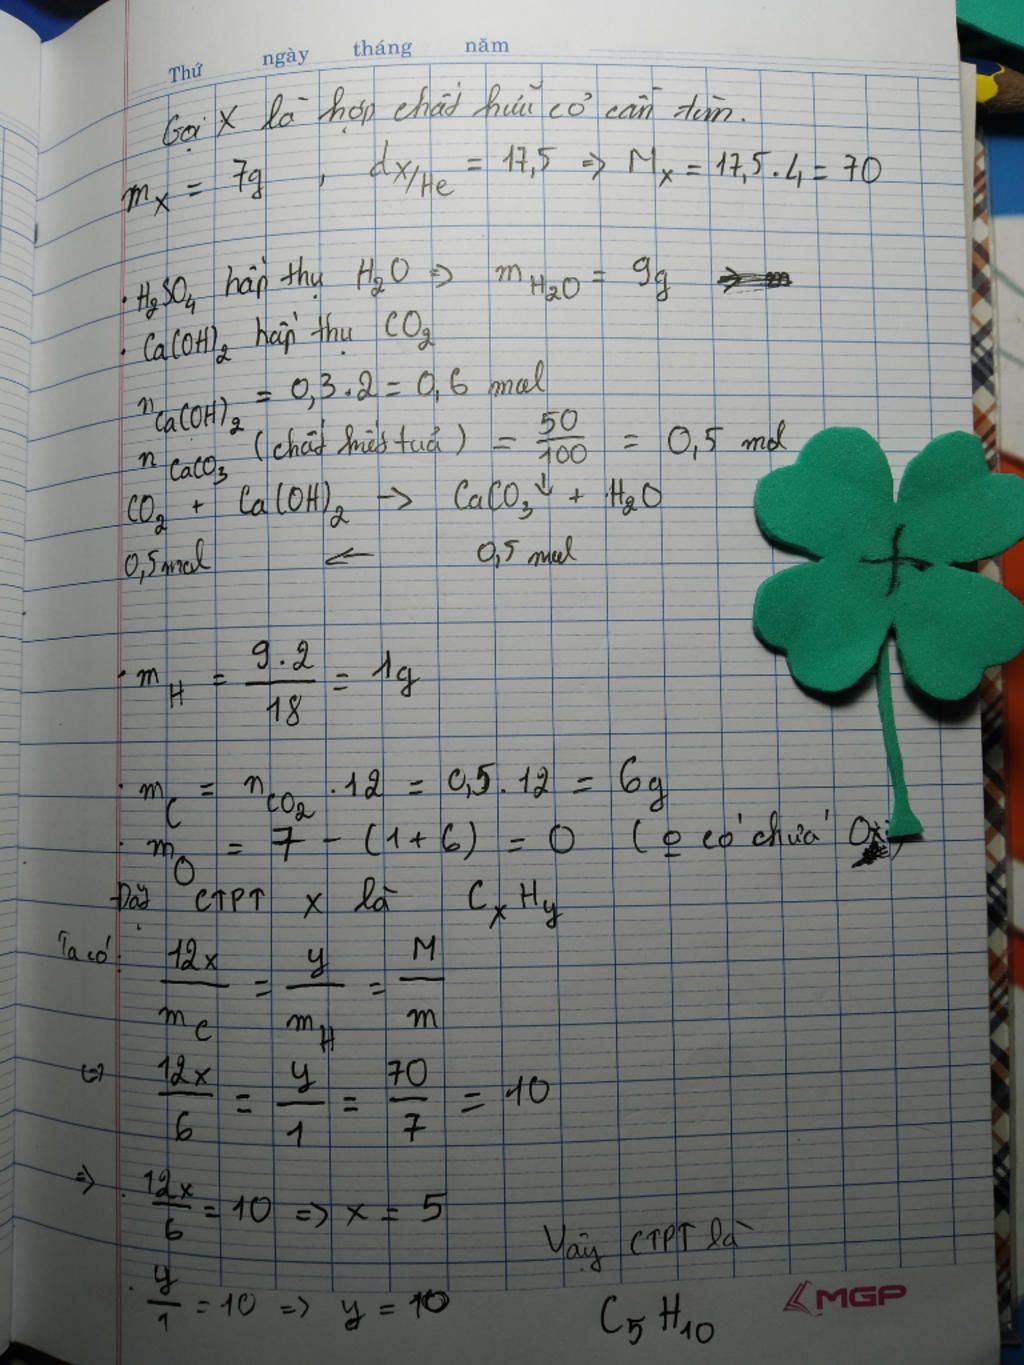 Thứ ngày tháng năm
Gọi X là hợp chất hữu cơ cần tìm.
m_X = 7g , d_X/He = 17,5 => M_X = 17,5 . 4 = 70
. H₂SO₄ hấp thụ H₂O => m_H₂O = 9g
. Ca(OH)₂ hấp thụ CO₂
n_Ca(OH)₂ = 0,3 . 2 = 0,6 mol
n_CaCO₃ (chất kết tủa) = 50/100 = 0,5 mol
CO₂ + Ca(OH)₂ -> CaCO₃↓ + H₂O
0,5 mol <- 0,5 mol
. m_H = 9 . 2/18 = 1g
. m_C = n_CO₂ . 12 = 0,5 . 12 = 6g
. m_O = 7 - (1 + 6) = 0 ( có chứa Oxi)
Đặt CTPT X là CₓHᵧ
Ta có: 12x/m_C = y/m_H = M/m
<=> 12x/6 = y/1 = 70/7 = 10
=> . 12x/6 = 10 => x = 5
Vậy CTPT là
. y/1 = 10 => y = 10
C₅H₁₀
MGP